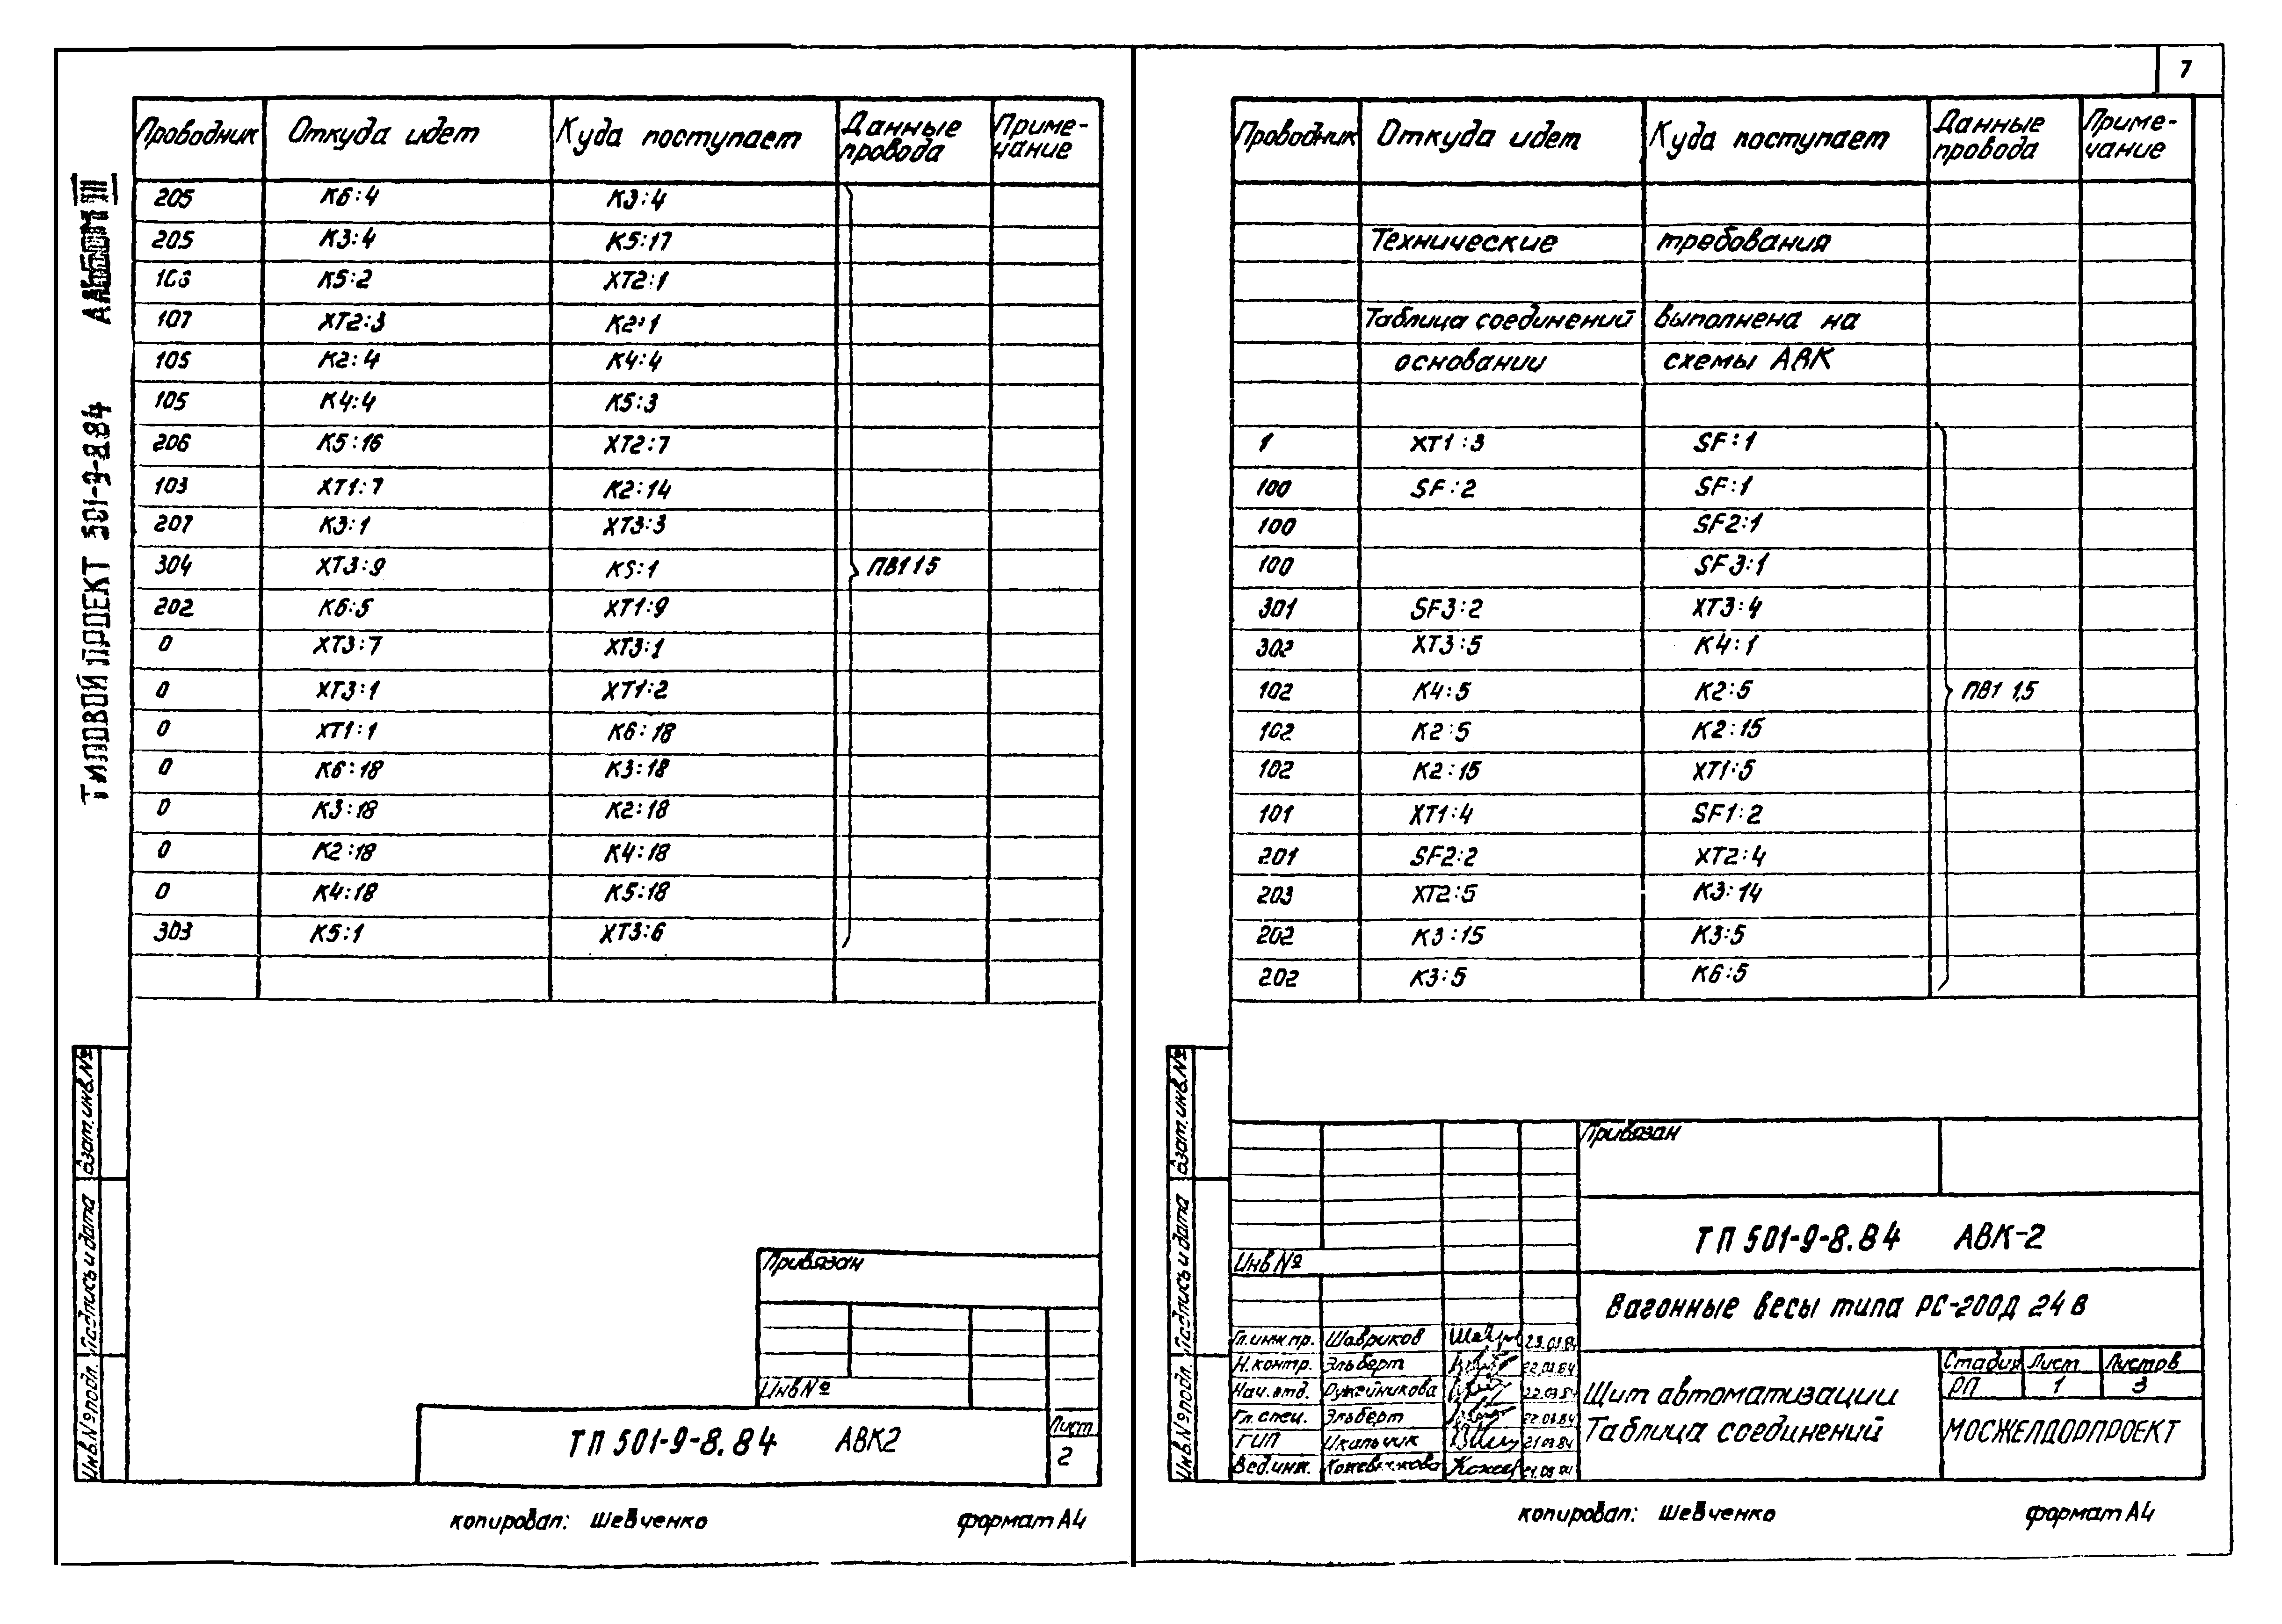 7
ТИПОВОЙ ПРОЕКТ 501-9-8.84 АЛЬБОМ III
Проводник Откуда идет Куда поступает Данные провода Приме-чание
205 К6:4 К3:4
205 К3:4 К5:17
К5:2 ХТ2:1
107 ХТ2:3 К2:1
105 К2:4 К4:4
105 К4:4 К5:3
206 К5:16 ХТ2:7
103 ХТ1:7 К2:14
207 К3:1 ХТ3:3
304 ХТ3:9 К5:1 ПВ1 1 5
202 К6:5 ХТ1:9
0 ХТ3:7 ХТ3:1
0 ХТ3:1 ХТ1:2
0 ХТ1:1 К6:18
0 К6:18 К3:18
0 К3:18 К2:18
0 К2:18 К4:18
0 К4:18 К5:18
303 К5:1 ХТ3:6
Взат. инв. №
Подпись и дата
Инв. № подл.
Привязан
Инв №
ТП 501-9-8.84 АВК2
Лист
2
копировал: Шевченко формат А4
Проводник Откуда идет Куда поступает Данные провода Приме-чание
Технические требования
Таблица соединений выполнена на
основании схемы АВК
1 ХТ1:3 SF:1
100 SF:2 SF:1
100 SF2:1
100 SF3:1
301 SF3:2 ХТ3:4
302 ХТ3:5 К4:1
102 К4:5 К2:5 ПВ1 1,5
102 К2:5 К2:15
102 К2:15 ХТ1:5
101 ХТ1:4 SF1:2
201 SF2:2 ХТ2:4
203 ХТ2:5 К3:14
202 К3:15 К3:5
202 К3:5 К6:5
Взат. инв. №
Подпись и дата
Инв. № подл.
Привязан
Инв №
ТП 501-9-8.84 АВК-2
Вагонные весы типа РС-200Д 24 В
Гл. инж. пр. Шавриков 23.03.84
Н. контр. Эльберт 22.03.84
Нач. отд. Ружейникова 22.03.84
Гл. спец. Эльберт 22.03.84
ГИП 21.03.84
Вед. инж. Кожевникова 21.03.84
Щит автоматизации
Таблица соединений
Стадия Лист Листов
РП 1 3
МОСЖЕЛДОРПРОЕКТ
копировал: Шевченко формат А4